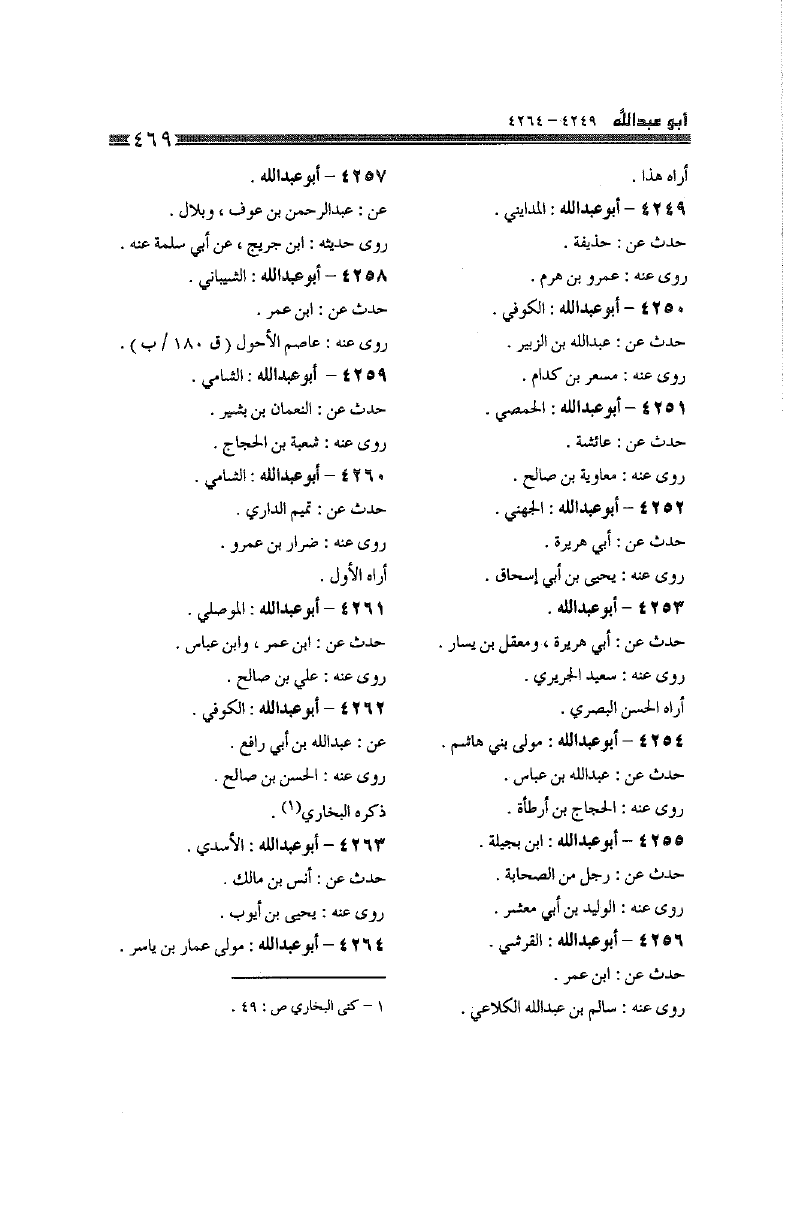 أبو عبدالله ٤٢٤٩ – ٤٢٦٤
٤٦٩
أراه هذا .
٤٢٤٩ – أبو عبدالله : المدايني .
حدث عن : حذيفة .
روى عنه : عمرو بن هرم .
٤٢٥٠ – أبو عبدالله : الكوفي .
حدث عن : عبدالله بن الزبير .
روى عنه : مسعر بن كدام .
٤٢٥١ – أبو عبدالله : الحمصي .
حدث عن : عائشة .
روى عنه : معاوية بن صالح .
٤٢٥٢ – أبو عبدالله : الجهني .
حدث عن : أبي هريرة .
روى عنه : يحيى بن أبي إسحاق .
٤٢٥٣ – أبو عبدالله .
حدث عن : أبي هريرة ، ومعقل بن يسار .
روى عنه : سعيد الجريري .
أراه الحسن البصري .
٤٢٥٤ – أبو عبدالله : مولى بني هاشم .
حدث عن : عبدالله بن عباس .
روى عنه : الحجاج بن أرطأة .
٤٢٥٥ – أبو عبدالله : ابن بجيلة .
حدث عن : رجل من الصحابة .
روى عنه : الوليد بن أبي معشر .
٤٢٥٦ – أبو عبدالله : القرشي .
حدث عن : ابن عمر .
روى عنه : سالم بن عبدالله الكلاعي .
٤٢٥٧ – أبو عبدالله .
عن : عبدالرحمن بن عوف ، وبلال .
روى حديثه : ابن جريج ، عن أبي سلمة عنه .
٤٢٥٨ – أبو عبدالله : الشيباني .
حدث عن : ابن عمر .
روى عنه : عاصم الأحول ( ق ١٨٠ / ب ) .
٤٢٥٩ – أبو عبدالله : الشامي .
حدث عن : النعمان بن بشير .
روى عنه : شعبة بن الحجاج .
٤٢٦٠ – أبو عبدالله : الشامي .
حدث عن : تميم الداري .
روى عنه : ضرار بن عمرو .
أراه الأول .
٤٢٦١ – أبو عبدالله : الموصلي .
حدث عن : ابن عمر ، وابن عباس .
روى عنه : علي بن صالح .
٤٢٦٢ – أبو عبدالله : الكوفي .
عن : عبدالله بن أبي رافع .
روى عنه : الحسن بن صالح .
ذكره البخاري(١) .
٤٢٦٣ – أبو عبدالله : الأسدي .
حدث عن : أنس بن مالك .
روى عنه : يحيى بن أيوب .
٤٢٦٤ – أبو عبدالله : مولى عمار بن ياسر .
١ – كنى البخاري ص : ٤٩ .